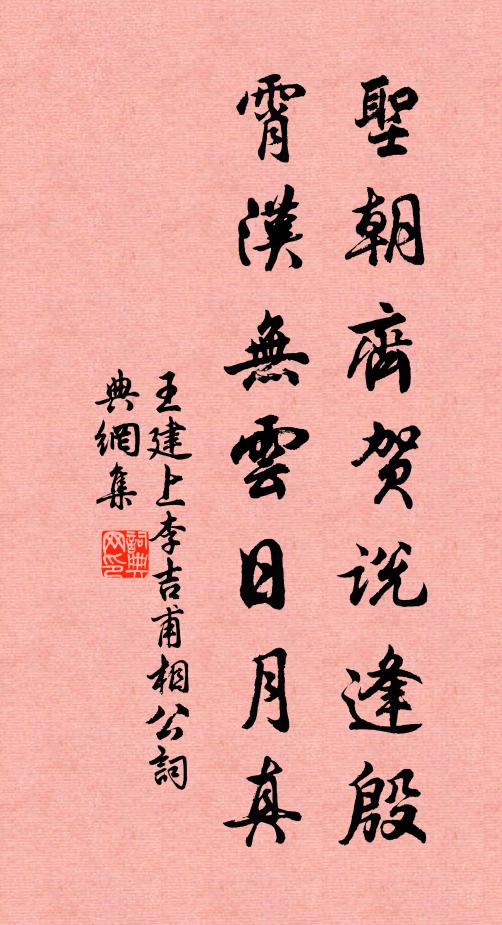 聖朝齊賀说逢殷
霄漢無雲日月真
王建上李吉甫相公詞
典網集
詞典网印